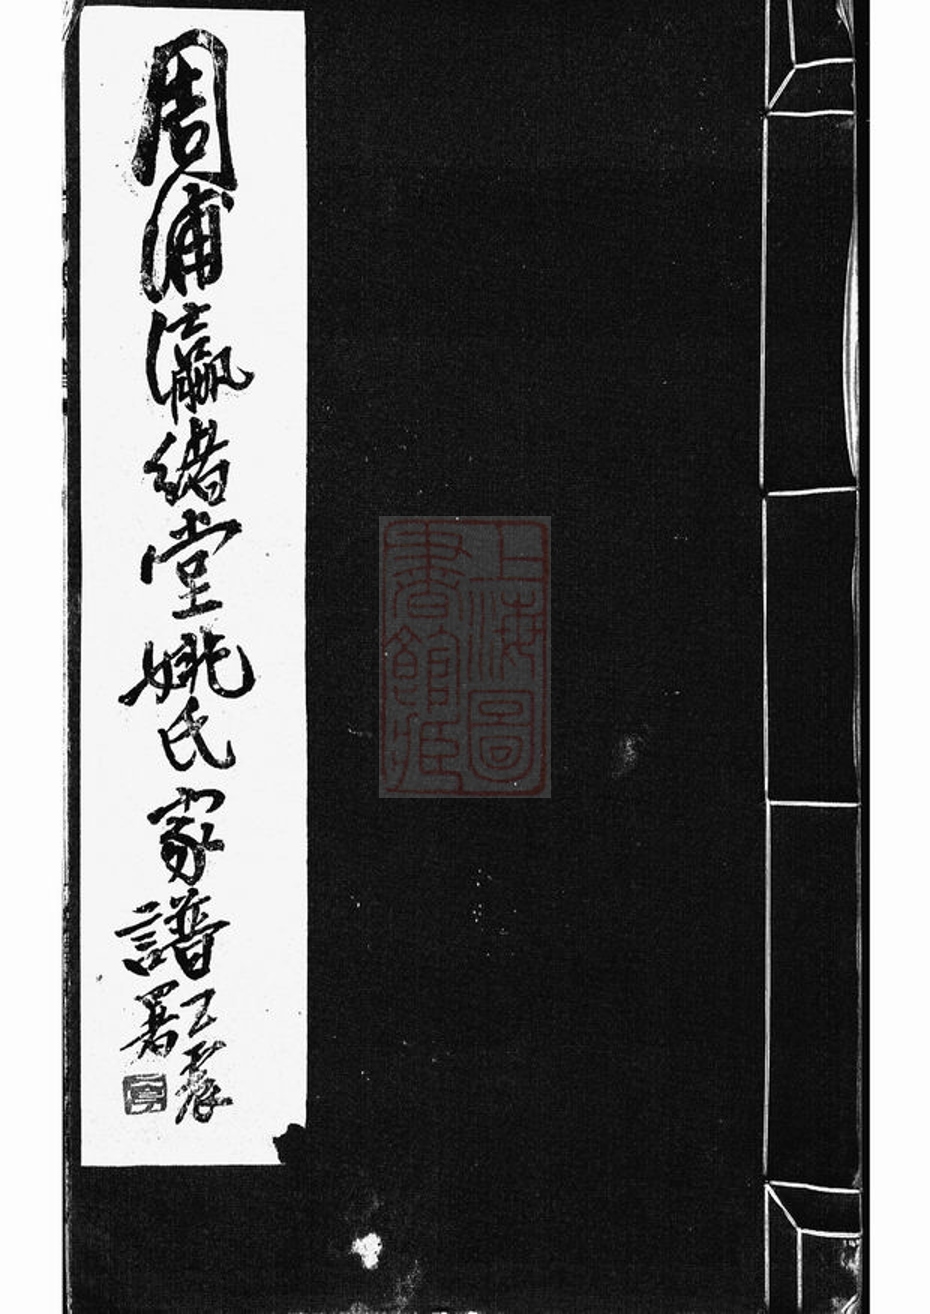 周浦瀛緒堂姚氏家譜
王震
署
一亭
上海圖
書館藏